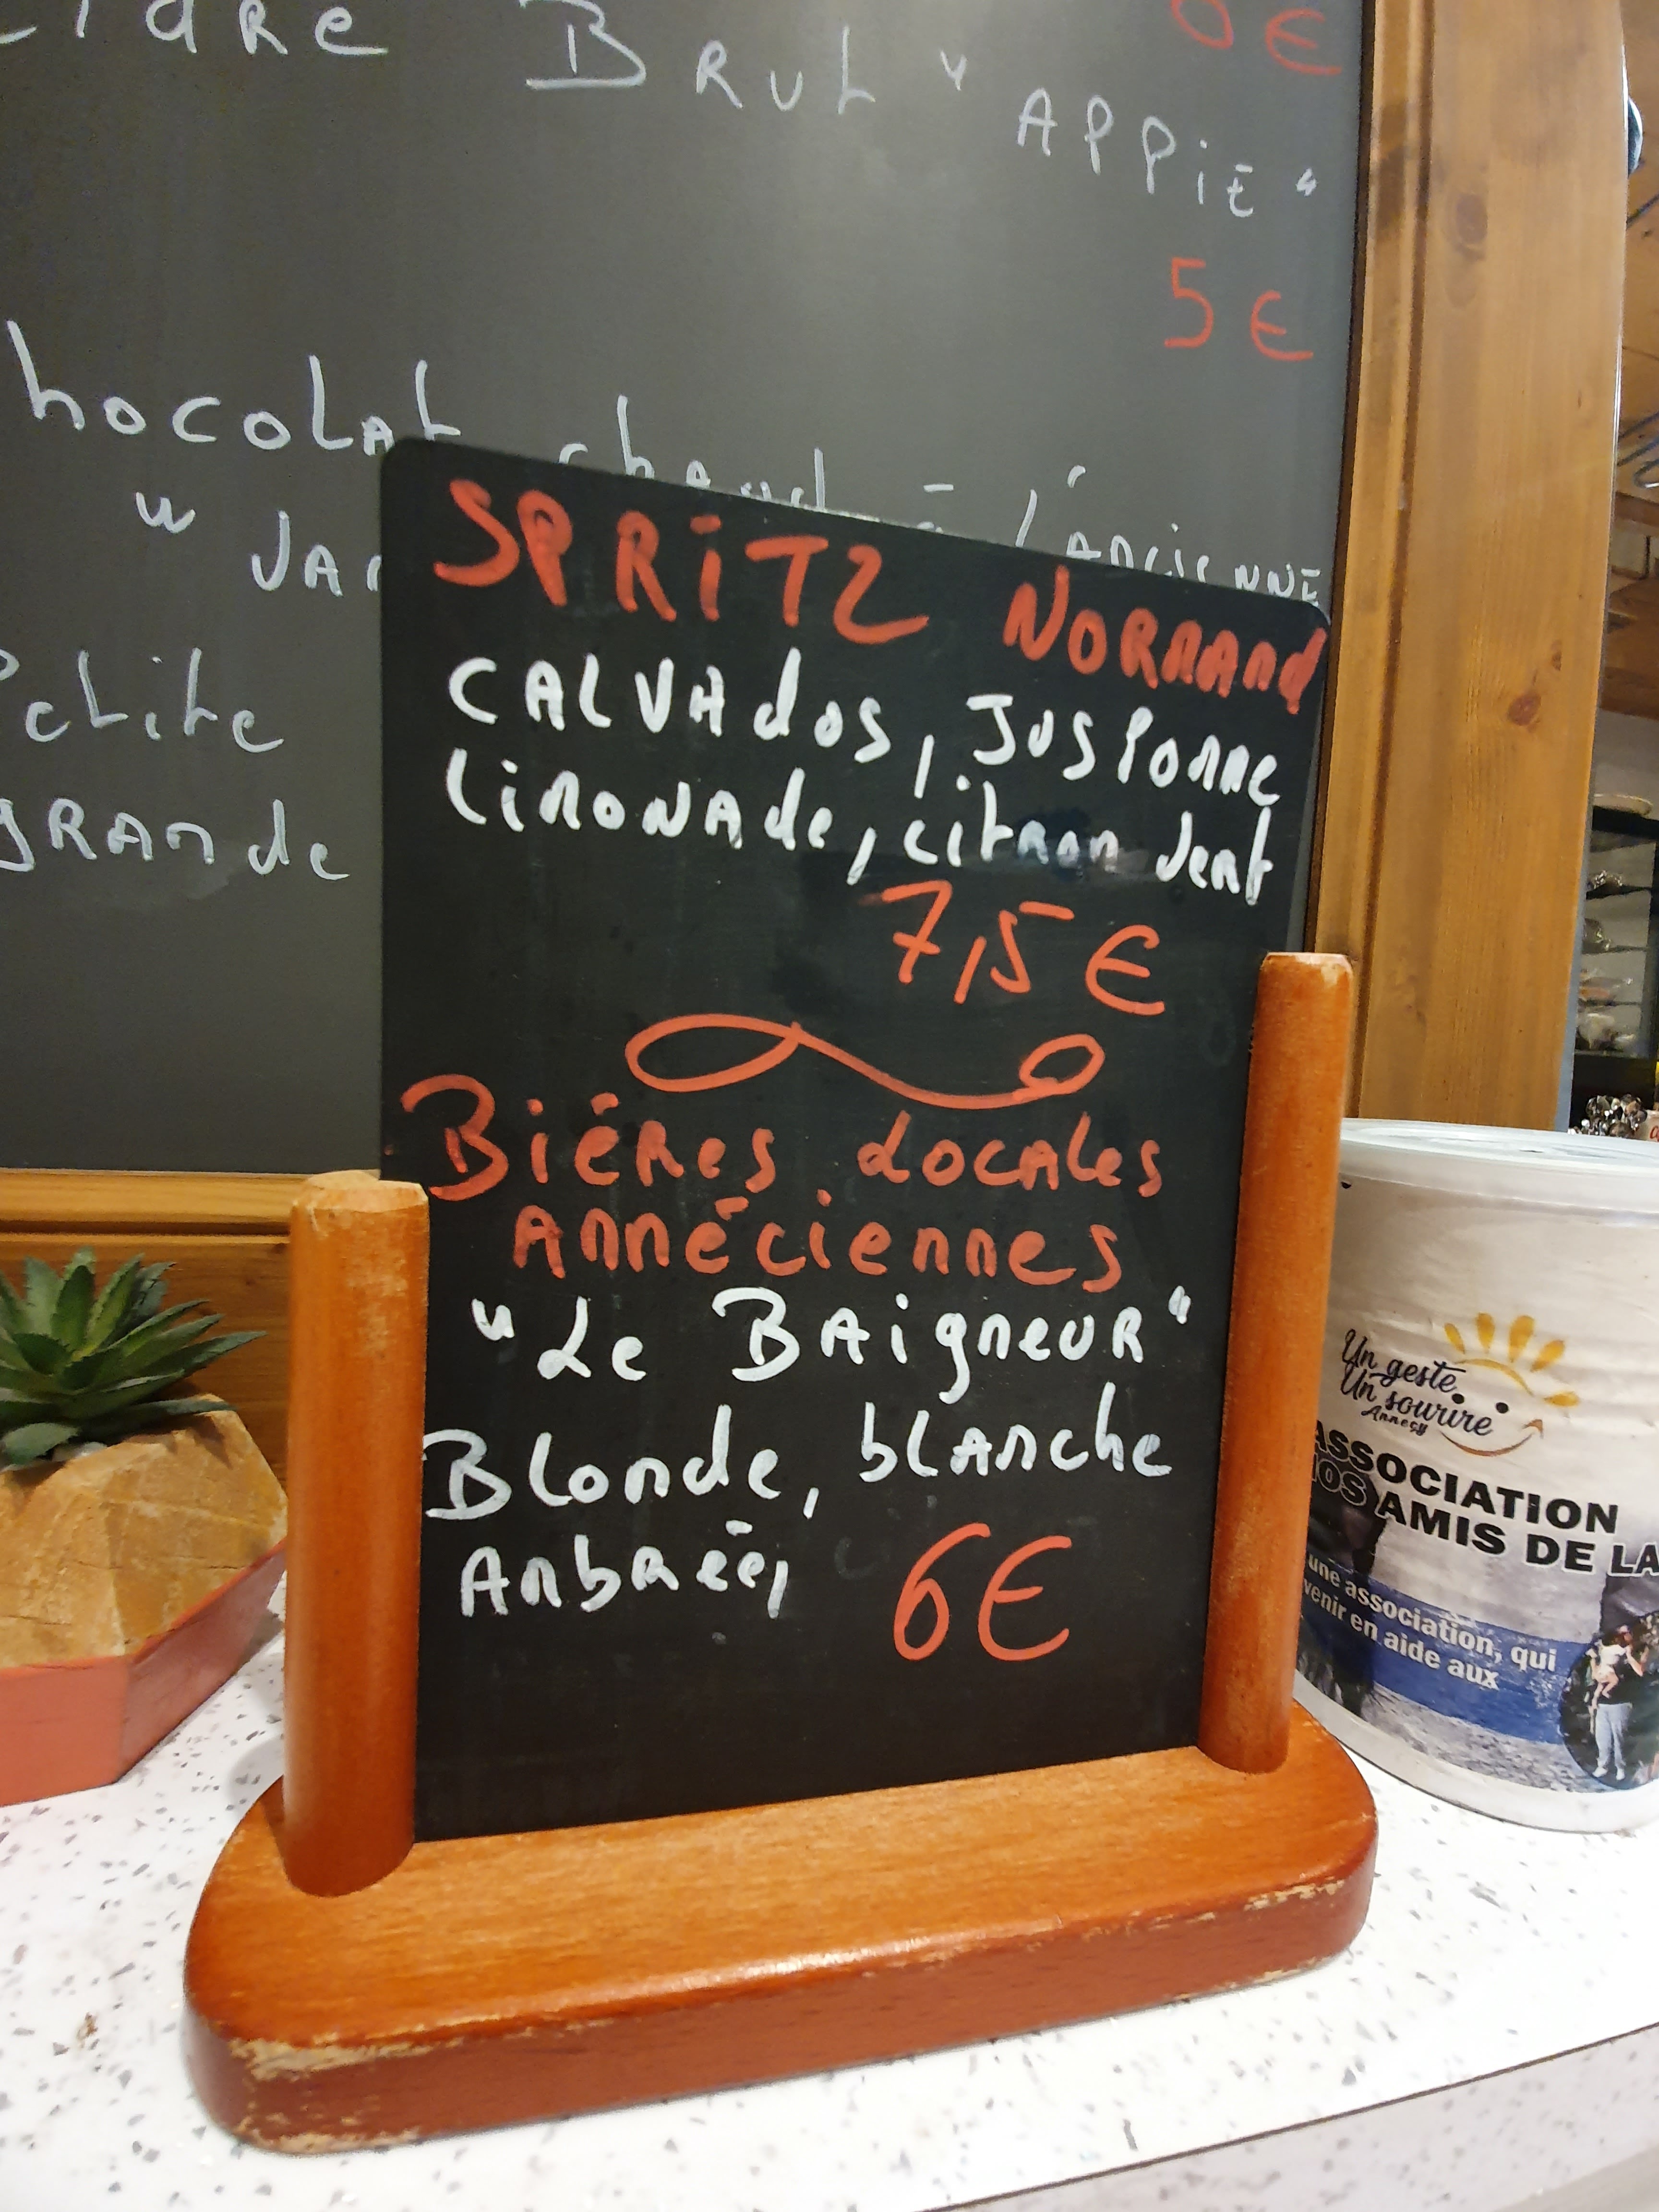 Brut "APPIE"
5€
à l'ancienne
Petite
grande
SPRITZ NORMAND
CALVAdos, JUS POMME
LIMONAde, citron vert
7,5€
Biéres Locales
Annéciennes
"Le BAigneUR"
Blonde, blanche
Anbrée, 6€
Un geste
Un sourire
Annecy
ASSOCIATION
NOS AMIS DE LA
une association, qui
venir en aide aux